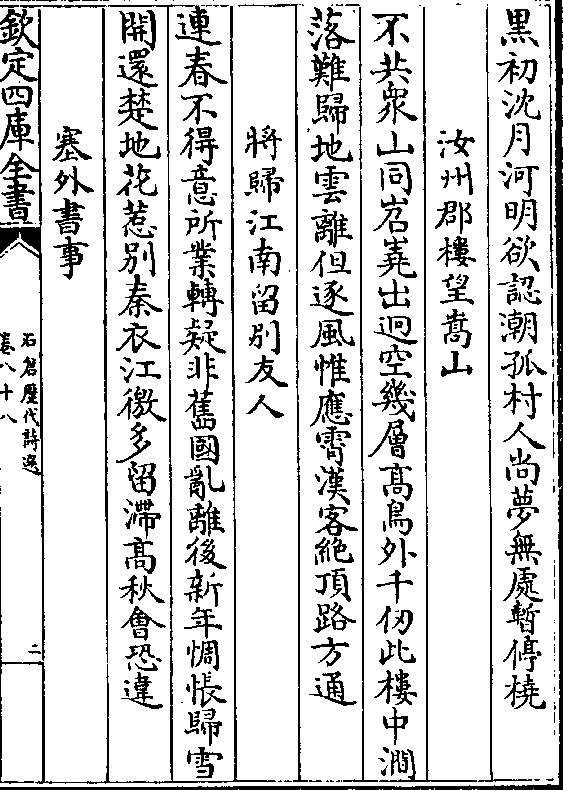 黒初沈月河明欲認潮孤村人尚夢無處暫停橈
汝州郡樓望嵩山
不共衆山同岧嶤出迥空幾層髙鳥外千仞此樓中澗
落難歸地雲離但逐風惟應霄漢客絶頂路方通
將歸江南留别友人
連春不得意所業轉疑非舊國亂離後新年惆悵歸雪
開還楚地花惹别秦衣江徼多留滯髙秋會恐違
塞外書事
欽定四庫全書
石倉歷代詩選
卷八十八
二